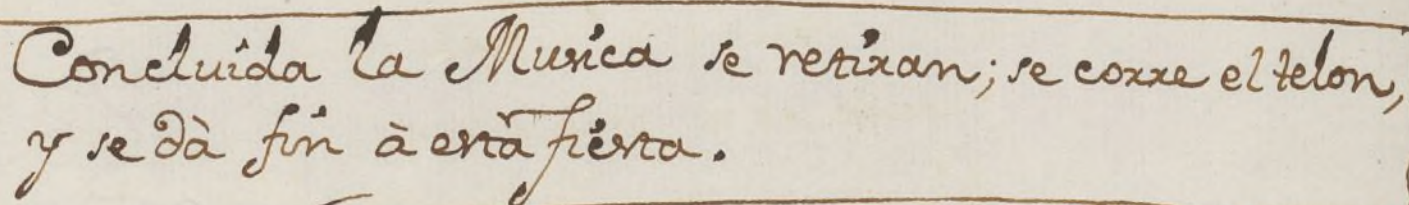 Concluida la Musica se retiran; se corre el telon,
y se dà fin à està fiesta.